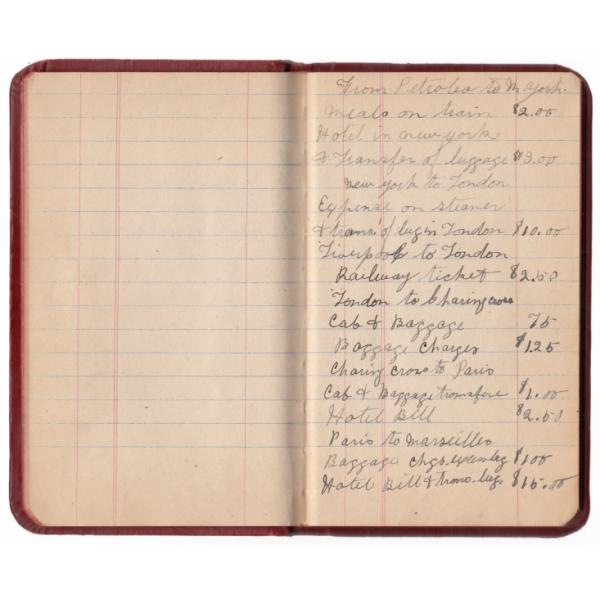 From Petrolea to N York.
Meals on train $2.00
Hotel in new york
& Transfer of luggage $3.00
new york to London
Expense on steamer
& trans. of lug in London $10.00
Liverpool to London
Railway ticket $2.50
London to Charing cross
Cab & Baggage 75
Baggage Charges $1.25
Charing cross to Paris
Cab & Baggage transfere $1.00
Hotel Bill $2.50
Paris to Marseilles
Baggage chgs. excess lug $1 00
Hotel Bill & trans. lug. $15.00